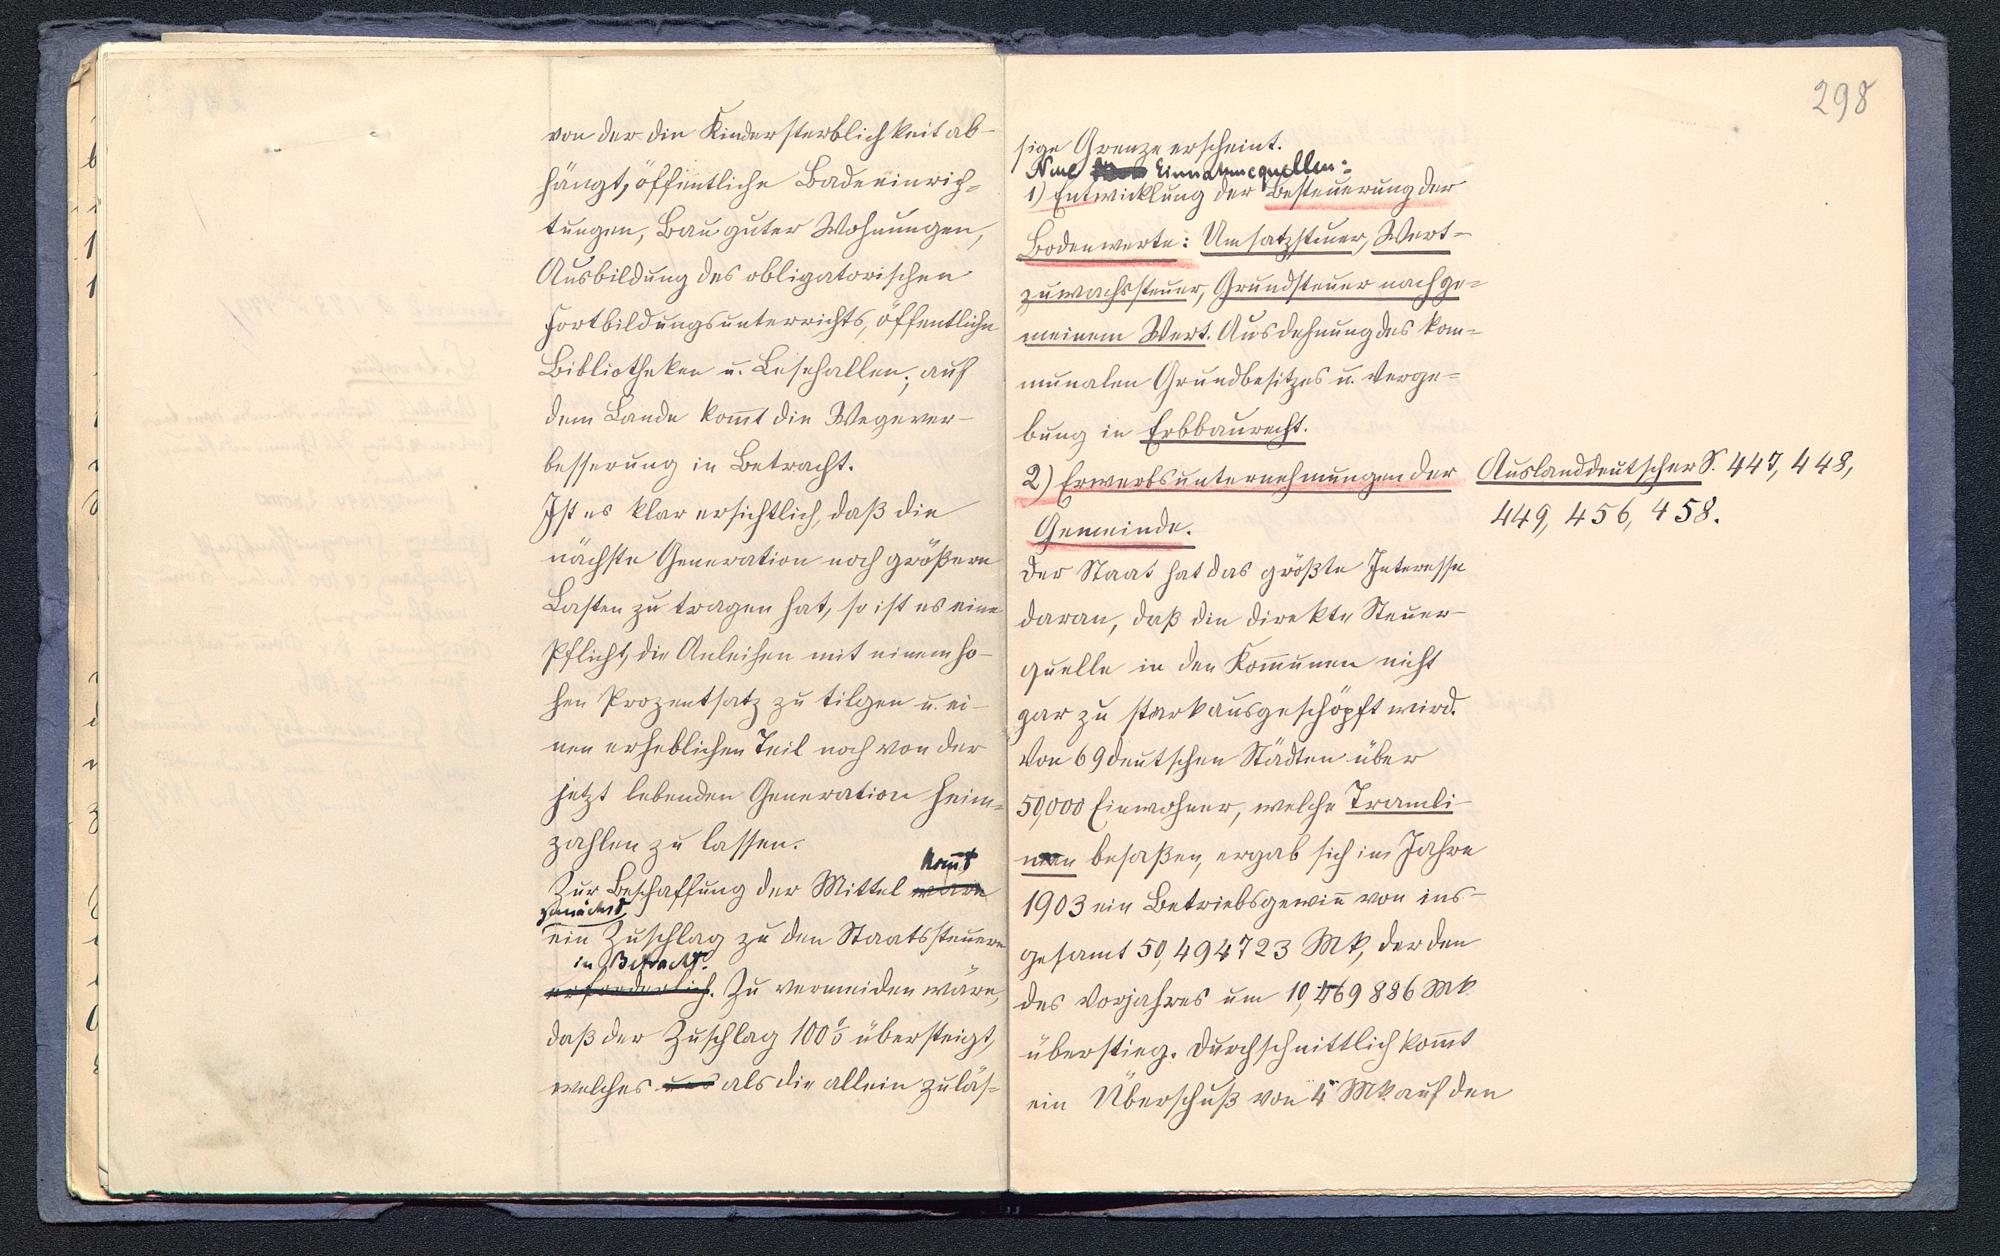 von der die Kindersterblichkeit ab-
hängt, öffentliche Badeeinrich-
tungen, Bau guter Wohnungen,
Ausbildung des obligatorischen
Fortbildungsunterrichts, öffentliche
Bibliotheken u. Lesehallen; auf
dem Lande kom̄t die Wegever-
besserung in Betracht.
Ist es klar ersichtlich, daß die
nächste Generation noch größere
Lasten zu tragen hat, so ist es eine
Pflicht, die Anleihen mit einem ho-
hen Prozentsatz zu tilgen u. ei-
nen erheblichen Teil noch von der
jetzt lebenden Generation heim-
zahlen zu lassen.
kom̄t
Zur Beschaffung der Mittel wäre
zunächst
ein Zuschlag zu den Staatssteuern
in Betracht.
erforderlich. Zu vermeiden wäre,
daß der Zuschlag 100% übersteigt,
welches als die allein zuläs-
298
sige Grenze erscheint.
Neue Einnahmequellen:
1) Entwicklung der Besteuerung der
Bodenwerte: Umsatzsteuer, Wert-
zuwachssteuer, Grundsteuer nach ge-
meinem Wert. Ausdehnung des kom-
munalen Grundbesitzes u. Verge-
bung in Erbbaurecht.
2) Erwerbsunternehmungen der
Gemeinde.
Auslanddeutscher S. 447, 448,
449, 456, 458.
Der Staat hat das größte Interesse
daran, daß die direkte Steuer-
quelle in den Kom̄unen nicht
gar zu stark ausgeschöpft wird.
Von 69 deutschen Städten über
50,000 Einwohner, welche Tramli-
nien besaßen, ergab sich im Jahre
1903 ein Betriebsgewin̄ von ins-
gesamt 50,494723 Mk, der den
des Vorjahres um 10,469886 Mk
überstieg. Durchschnittlich kom̄t
ein Überschuß von 4 Mk. auf den